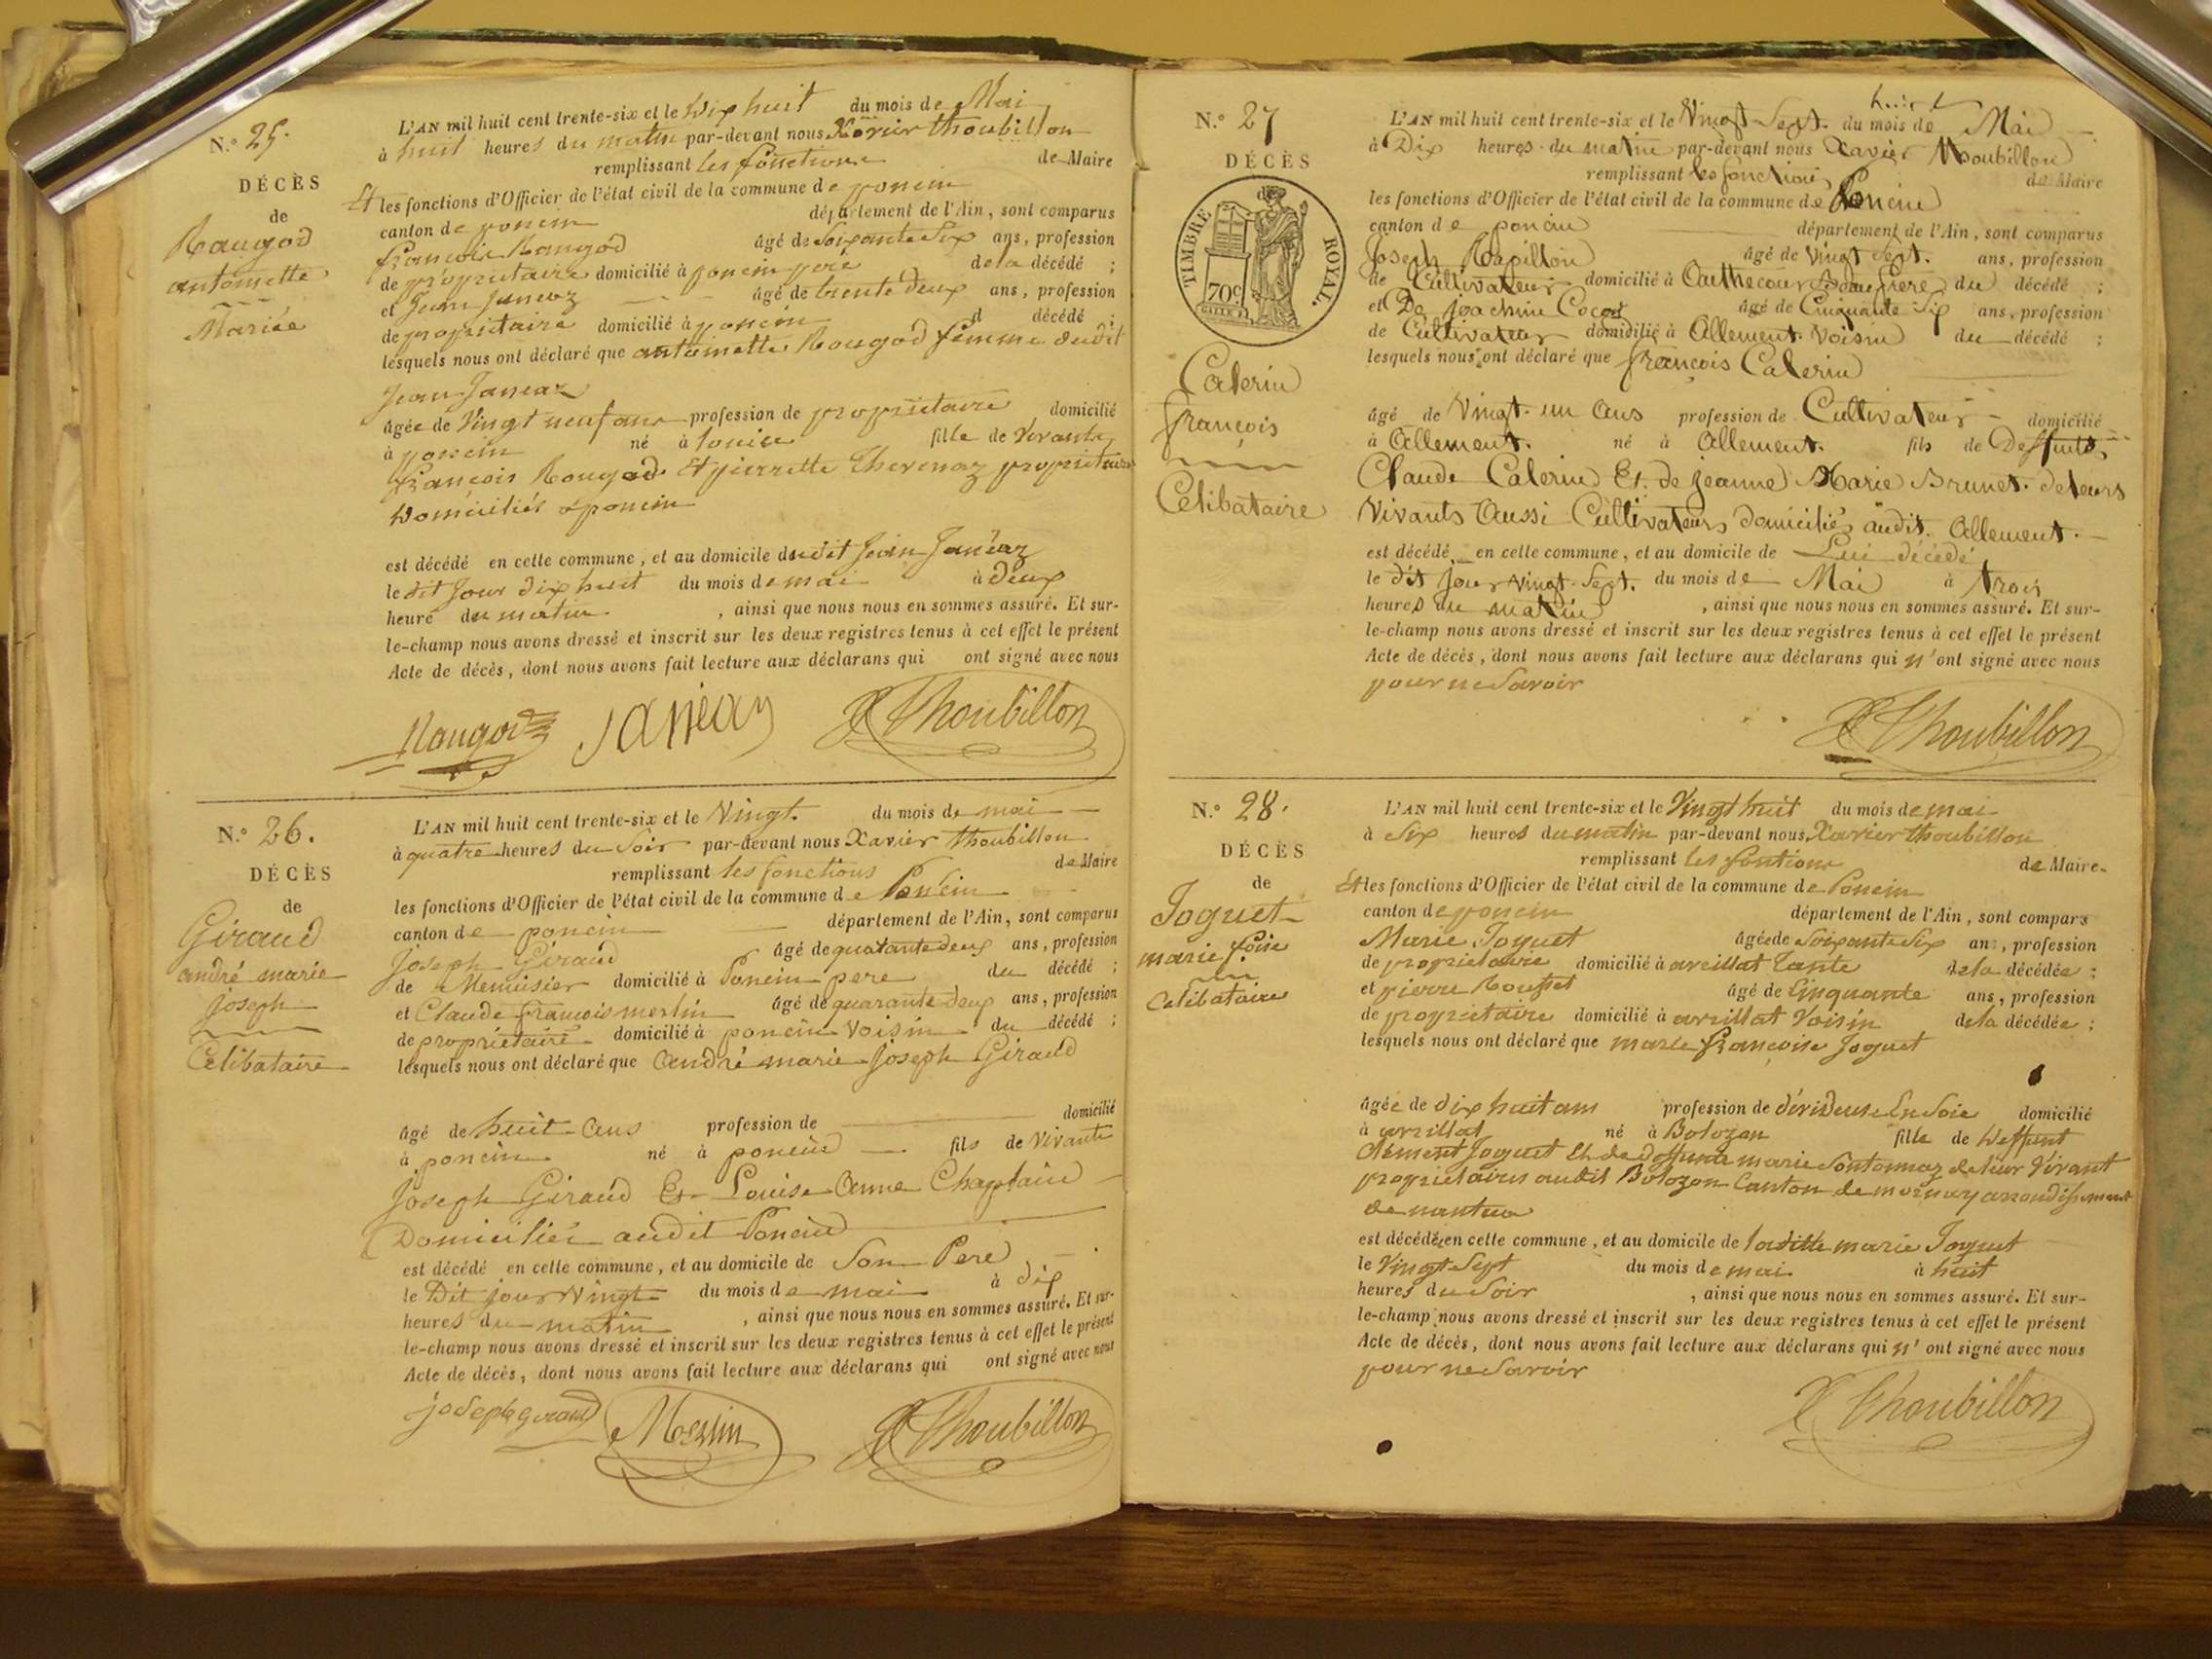 N.º 25.
DÉCÈS
de
Rougod
antoinette
Mariée
L'AN mil huit cent trente-six et le Dix huit du mois de Mai
à huit heures du matin par-devant nous Xavier thoubillon
remplissant les fonctions de Maire
Et les fonctions d'Officier de l'état civil de la commune de poncin
canton de poncin département de l'Ain, sont comparus
françois Rougod âgé de Soixante Six ans, profession
de propriétaire domicilié à poncin père de la décédé ;
et Jean Janeaz âgé de trente deux ans, profession
de propriétaire domicilié à poncin d décédé ;
lesquels nous ont déclaré que antoinette Rougod femme dudit
Jean Janeaz
âgée de Vingt neuf ans profession de propriétaire domicilié
à poncin né à fille de Vivants
françois Rougod Et pierrette thevenaz propriétaires
Domiciliés à poncin
est décédé en cette commune, et au domicile du dit Jean Janeaz
le dit Jour dix huit du mois de mai à deux
heure du matin , ainsi que nous nous en sommes assuré. Et sur-
le-champ nous avons dressé et inscrit sur les deux registres tenus à cet effet le présent
Acte de décès, dont nous avons fait lecture aux déclarans qui ont signé avec nous
Rougod Janeaz X Thoubillon
N.º 26.
DÉCÈS
de
Giraud
andré marie
Joseph
Célibataire
L'AN mil huit cent trente-six et le Vingt. du mois de mai
à quatre heures du Soir par-devant nous Xavier thoubillon
remplissant les fonctions de Maire
les fonctions d'Officier de l'état civil de la commune de Poncin
canton de poncin département de l'Ain, sont comparus
Joseph Giraud âgé de quatante deux ans, profession
de Menuisier domicilié à Poncin pere du décédé ;
et Claude françois merlin âgé de quarante deux ans, profession
de propriétaire domicilié à poncin Voisin du décédé ;
lesquels nous ont déclaré que andré marie Joseph Giraud
âgé de huit ans profession de domicilié
à poncin né à poncin fils de Vivants
Joseph Giraud Et Louise Anne Chaplain
Domiciliés audit Poncin
est décédé en cette commune, et au domicile de Son Pere
le Dit jour Vingt du mois de mai à dix
heures du matin , ainsi que nous nous en sommes assuré. Et sur-
le-champ nous avons dressé et inscrit sur les deux registres tenus à cet effet le présent
Acte de décès, dont nous avons fait lecture aux déclarans qui ont signé avec nous
joseph giraud Merlin X Thoubillon
N.º 27
DÉCÈS
TIMBRE ROYAL.
70c
Calerin
françois
Célibataire
L'AN mil huit cent trente-six et le Vingt Sept. du mois de Mai
à Dix heures du matin par-devant nous Xavier Thoubillon
remplissant les fonctions de Maire
les fonctions d'Officier de l'état civil de la commune de Poncin
canton de poncin département de l'Ain, sont comparus
Joseph Papillon âgé de Vingt Sept. ans, profession
de Cultivateur domicilié à Beau frere du décédé ;
et De joachim Cocod âgé de Cinquante Six ans, profession
de Cultivateur domicilié à Allement. Voisin du décédé ;
lesquels nous ont déclaré que françois Calerin
âgé de Vingt-un ans profession de Cultivateur domicilié
à Allement. né à Allement. fils de Deffunts
Claude Calerin Et. de jeanne Marie Brunet. de leurs
Vivants Aussi Cultivateurs domiciliés audit. Allement.
est décédé en cette commune, et au domicile de Lui décédé
le dit jour vingt Sept. du mois de Mai à trois
heures du matin , ainsi que nous nous en sommes assuré. Et sur-
le-champ nous avons dressé et inscrit sur les deux registres tenus à cet effet le présent
Acte de décès, dont nous avons fait lecture aux déclarans qui n'ont signé avec nous
pour ne Savoir
X Thoubillon
N.º 28.
DÉCÈS
de
Joguet
marie foise
Celibataire
L'AN mil huit cent trente-six et le Vingt huit du mois de mai
à Six heures du matin par-devant nous Xavier thoubillon
remplissant les fontions de Maire
Et les fonctions d'Officier de l'état civil de la commune de Poncin
canton de poncin département de l'Ain, sont compars
Marie Joguet âgée de Soixante Six ans, profession
de propriétaire domicilié à tante de la décédée ;
et pierre Rousset âgé de Cinquante ans, profession
de propriétaire domicilié à Voisin de la décédée ;
lesquels nous ont déclaré que marie françoise Joguet
âgée de dix huit ans profession de dévideuse En Soie domicilié
à né à Bolozon fille de Deffunt
Clément Joguet Et de deffunte marie de leur Vivant
propriétaires audit Bolozon Canton de arrondissement
de nantua
est décédée en cette commune, et au domicile de ladite marie Joguet
le Vingt Sept du mois de mai à huit
heures du Soir , ainsi que nous nous en sommes assuré. Et sur-
le-champ nous avons dressé et inscrit sur les deux registres tenus à cet effet le présent
Acte de décès, dont nous avons fait lecture aux déclarans qui n'ont signé avec nous
pour ne Savoir
X Thoubillon